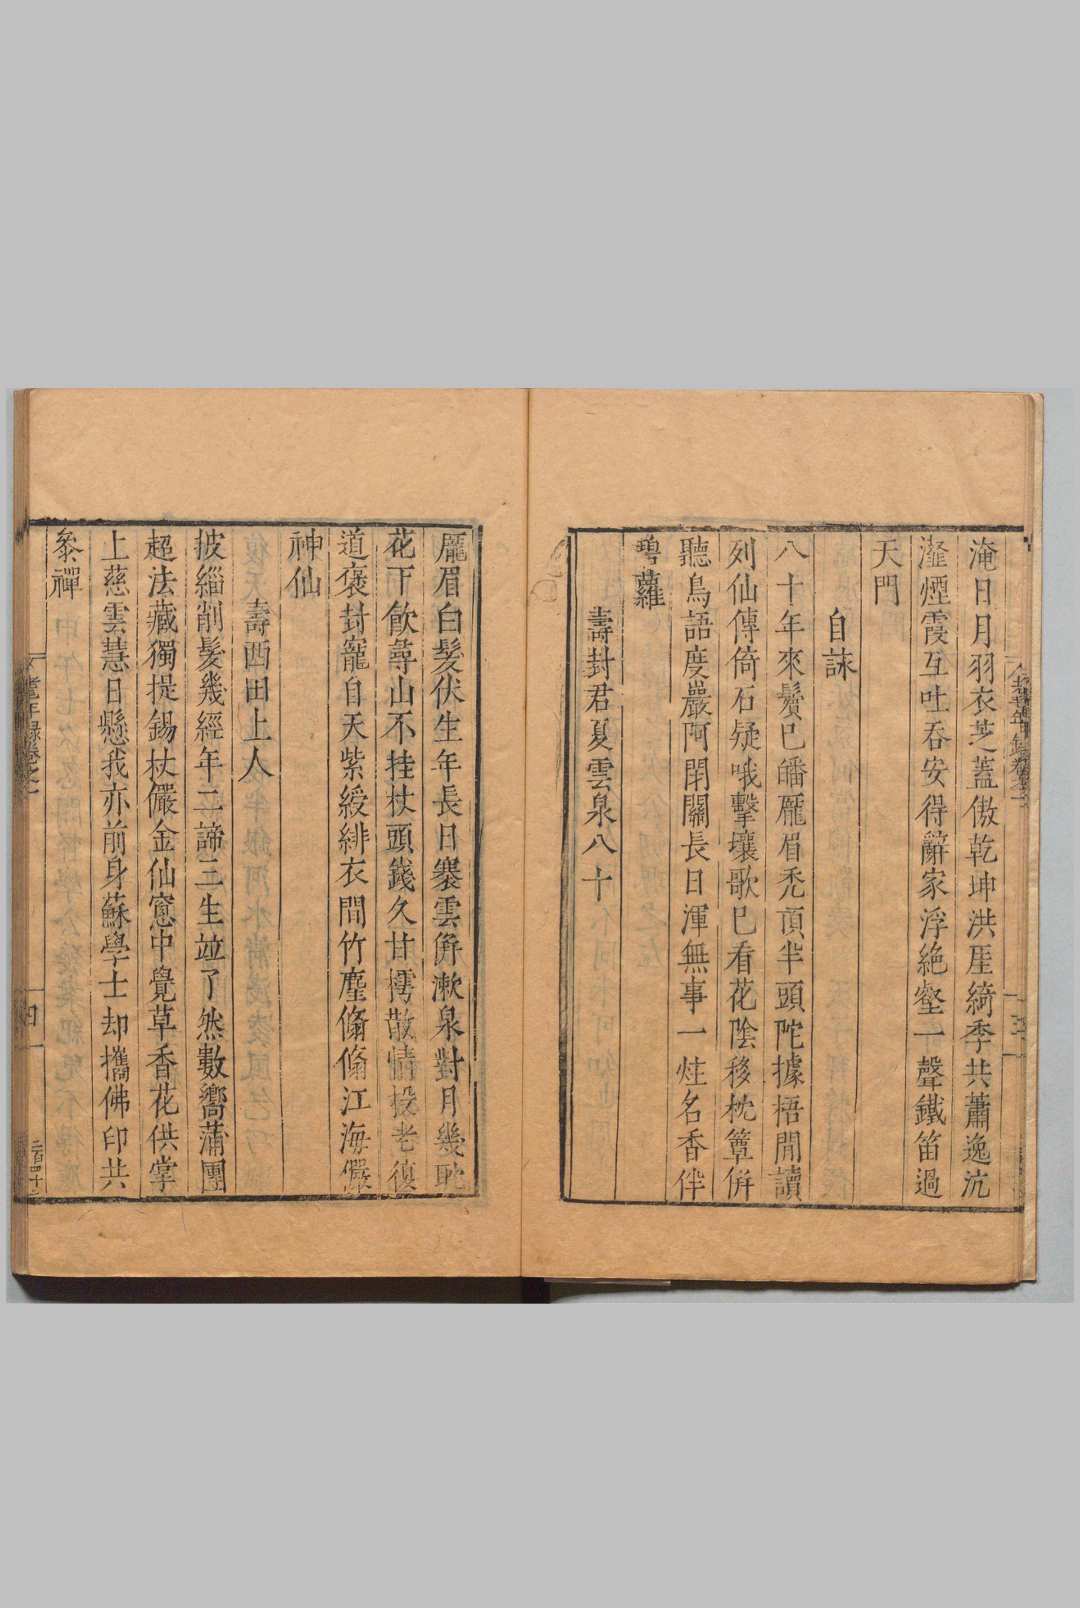 淹日月羽衣芝蓋傲乾坤洪厓綺季共蕭逸沆
瀣煙霞互吐吞安得辭家浮絶壑一聲鐵笛過
天門
自詠
八十年來鬢已皤厖眉禿頂半頭陀據梧閒讀
列仙傳倚石疑哦擊壤歌已看花陰移枕簟併
聽鳥語度巖阿閉關長日渾無事一炷名香伴
碧蘿
壽封君夏雲泉八十
厖眉白髮伏生年長日褰雲併漱泉對月幾耽
花下飲尋山不挂杖頭錢久甘樗散情投老復
道褒封寵自天紫綬緋衣間竹麈翛翛江海儼
神仙
壽西田上人
披緇削髮幾經年二諦三生竝了然數嚮蒲團
超法藏獨提錫杖儼金仙窓中覺草香花供掌
上慈雲慧日懸我亦前身蘇學士却攜佛印共
叅禪
耄年錄卷之
四